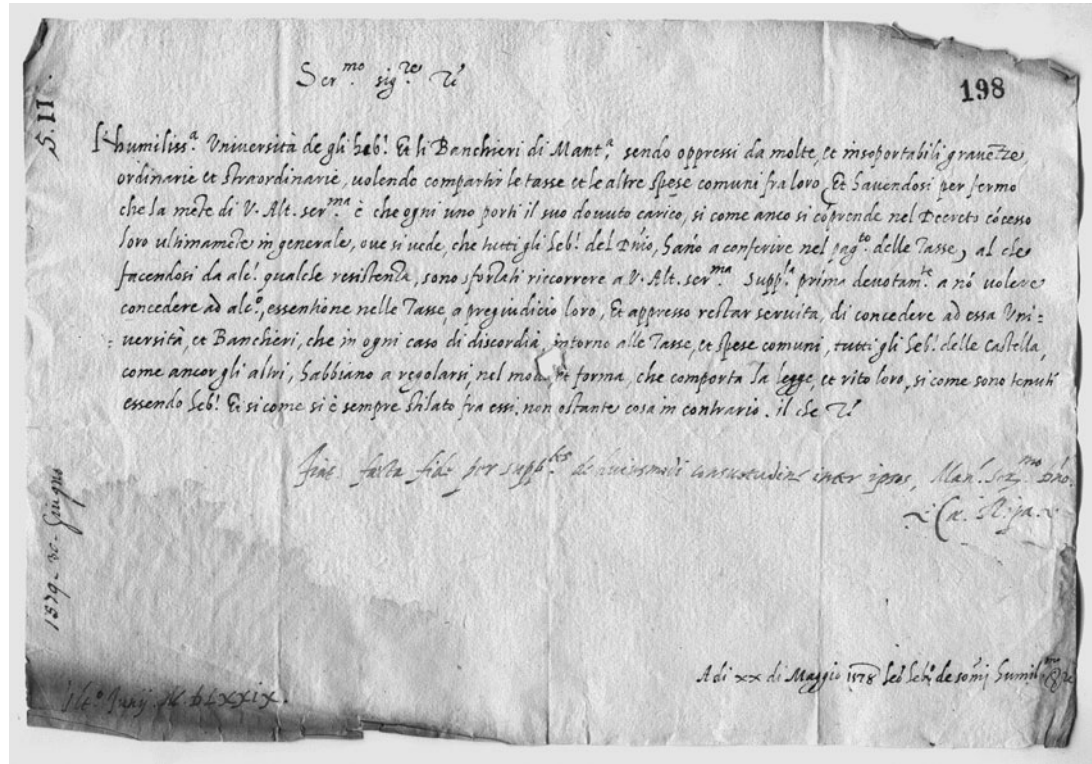 198
5. II.
Ser.mo sig.re &
L'humiliss.a Università de gli heb.i Et li Banchieri di Mant.a, sendo oppressi da molte, et insoportabili gravezze,
ordinarie et straordinarie, volendo compartir le tasse et le altre spese comuni fra loro, Et havendosi per fermo
che la mete di V. Alt. ser.ma è che ogni uno porti il suo dovuto carico, si come anco si cõprende nel Decreto cõcesso
loro ultimamẽte in generale, ove si vede, che tutti gli heb.i del Dñio, hãno a conferire nel pag.to delle Tasse, al che
facendosi da alc.i qualche resistenza, sono sforzati riccorrere a V. Alt. ser.ma supp.la prima devotam.te a nõ volere
concedere ad alc.o, essentione nelle Tasse, a pregiudicio loro, Et appresso restar servita, di concedere ad essa Uni=
:versità, et Banchieri, che in ogni caso di discordia, intorno alle Tasse, et spese comuni, tutti gli heb.i delle Castella,
come ancor gli altri, habbiano a regolarsi, nel et forma, che comporta la legge, et rito loro, si come sono tenuti
essendo heb.i Et si come si è sempre stilato fra essi, non ostante cosa in contrario. il che &
fiat facta fide per supp.tes de huiusmodi consuetudine inter ipsos, Man.
1579. 30. Giugno
A di xx di Maggio 1578 heb.o de somj humil.mo
Ult.o Junij M.DLXXIX.